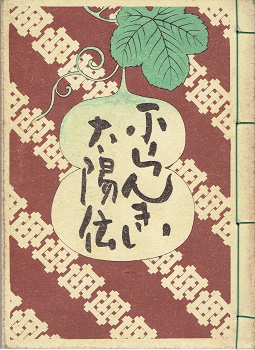 ふらんきい
太陽伝